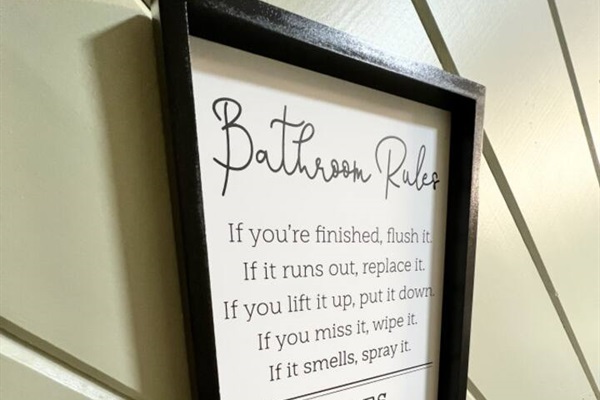 Bathroom Rules
If you're finished, flush it.
If it runs out, replace it.
If you lift it up, put it down.
If you miss it, wipe it.
If it smells, spray it.